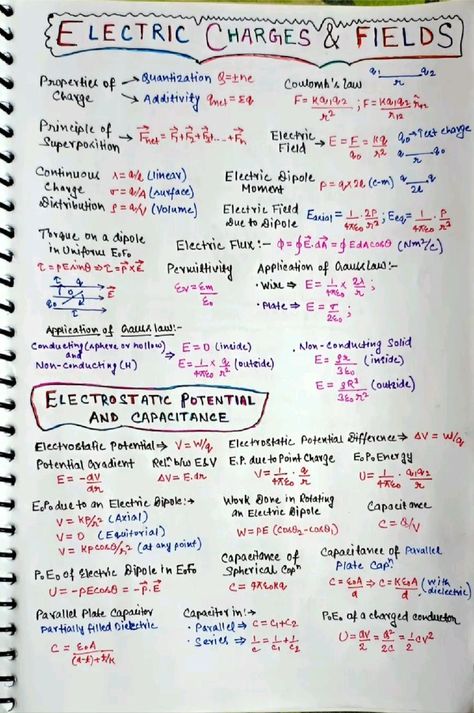 ELECTRIC CHARGES & FIELDS
Properties of Charge → Quantization Q=±ne
→ Additivity q_net = Σq
Coulomb's law
q₁ q₂
r
F = Kq₁q₂/r² ; F = Kq₁q₂/r₁₂ r̂₁₂
Principle of Superposition → F⃗net = F⃗₁+F⃗₂+F⃗₃....+F⃗n
Electric Field → E = F/q₀ = Kq/r²
q₀→Test charge
q₀ q
r
Continuous Charge Distribution
λ = q/l (linear)
σ = q/A (surface)
ρ = q/V (Volume)
Electric Dipole Moment
P = q×2l (c-m)
q q
2l
Electric Field Due to Dipole
Eaxial = 1/4πε₀ · 2P/r³ ; Eeq = 1/4πε₀ · P/r³
Torque on a dipole in Uniform E.F.
τ = PE sinθ ⇒ τ⃗ = P⃗×E⃗
E⃗
Electric Flux:- Φ = ∮E⃗.dA⃗ = ∮EdAcosθ (Nm²/c)
Permittivity
εr = εm/ε₀
Application of Gauss law:-
• Wire → E = 1/4πε₀ × 2λ/r ;
• Plate → E = σ/2ε₀ ;
Application of Gauss law:-
Conducting (sphere or hollow) and Non-Conducting (H)
⇒ E = 0 (inside)
E = 1/4πε₀ × q/r² (outside)
• Non-conducting Solid
E = ρr/3ε₀ (inside)
E = ρR³/3ε₀r² (outside)
ELECTROSTATIC POTENTIAL AND CAPACITANCE
Electrostatic Potential → V = W/q
Electrostatic Potential Difference → ΔV = W/q
Potential Gradient
E = -dV/dr
Relⁿ b/w E&V
ΔV = E.dr
E.P. due to Point Charge
V = 1/4πε₀ · q/r
E.P. Energy
U = 1/4πε₀ · q₁q₂/r
E.P. due to an Electric Dipole:→
V = KP/r² (Axial)
V = 0 (Equitorial)
V = KPcosθ/r² (at any point)
Work Done in Rotating an Electric Dipole
W = PE (cosθ₂ - cosθ₁)
Capacitance
C = Q/V
P.E. of Electric Dipole in E.F.
U = -PEcosθ = -P⃗.E⃗
Capacitance of Spherical Capⁿ
C = 4πε₀Ka
Capacitance of Parallel Plate Capⁿ
C = ε₀A/d ⇒ C = Kε₀A/d (with dielectric)
Parallel Plate Capacitor
Partially filled Dielectric
C = ε₀A/(d-t)+t/K
Capacitor in:→
• Parallel → C = C₁+C₂
• Series → 1/C = 1/C₁ + 1/C₂
P.E. of a charged conductor
U = QV/2 = Q²/2C = 1/2 CV²